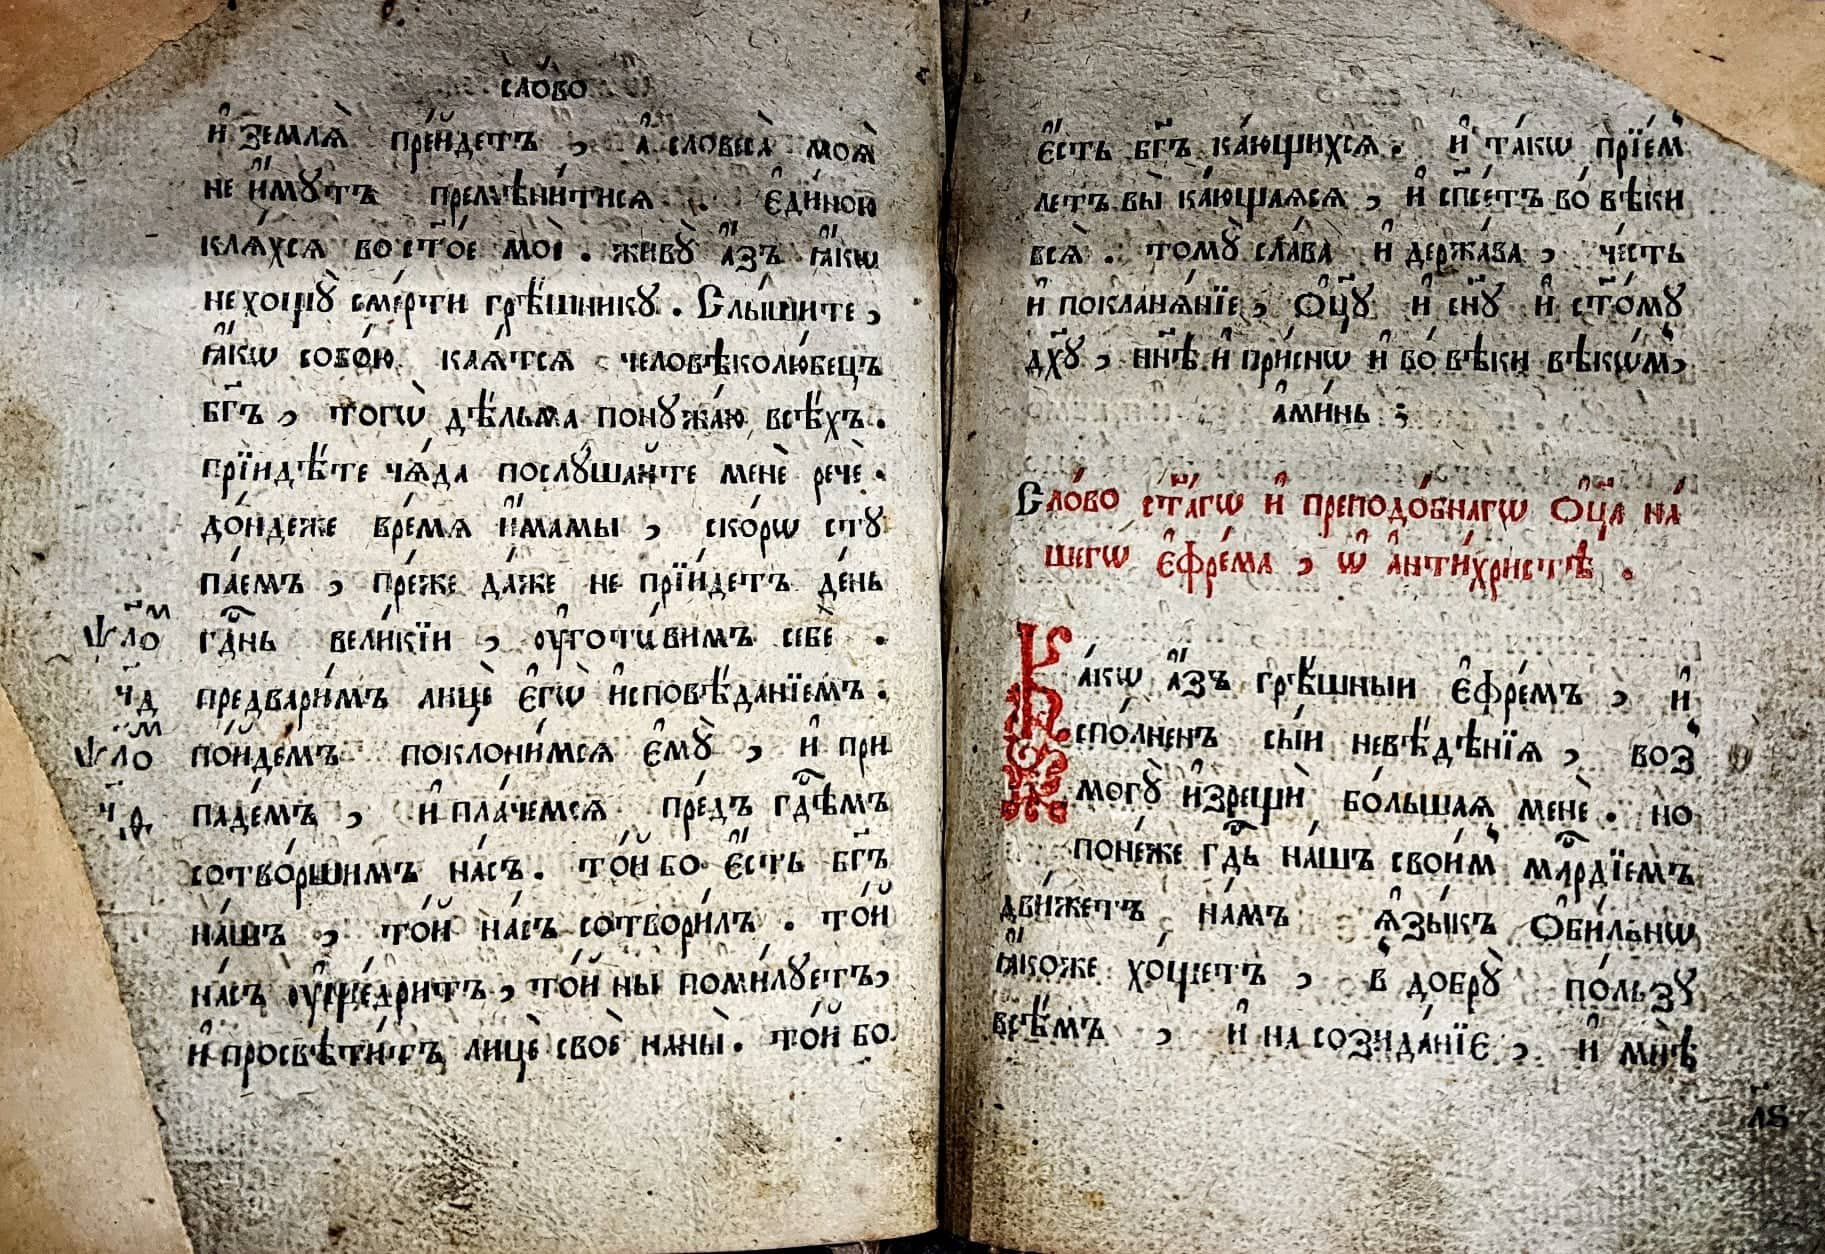 сло́во
и҆ землѧ̀ пре́йдетъ , а҆ словеса̀ моѧ̀
не и҆́мꙋтъ премѣни́тисѧ . є҆ди́ною
клѧ́хсѧ во ст҃о́е моѐ . живꙋ̀ а҆́зъ ꙗ҆́кѡ
не хощꙋ̀ сме́рти грѣ́шникꙋ . Слы́шите ,
ꙗ҆́кѡ собо́ю каѧ́тсѧ человѣколю́бецъ
бг҃ъ , тогѡ̀ дѣ́льма понꙋжа́ю всѣ́хъ .
прїидѣ́те ча́да послꙋ́шайте менѐ речѐ .
до́ндеже вре́мѧ и҆́мамы , ско́рѡ стꙋ
па́емъ , пре́же да́же не прїи́детъ де́нь
ѱало́м гд҃нь вели́кїи , ᲂу҆гото́вимъ себѐ .
ч҃д предвари́мъ лицѐ є҆гѡ̀ и҆сповѣ́данїемъ .
ѱало́м по́йде́мъ поклони́мсѧ є҆мꙋ̀ , и҆ при
ч҃д паде́мъ , и҆ пла́чемсѧ пре́дъ гд҃ѣмъ
сотво́ршимъ на́съ . то́й бо є҆́сть бг҃ъ
на́шъ , то́й на́съ сотвори́лъ . то́й
на́съ ᲂу҆ще́дритъ , то́й ны поми́лꙋетъ ,
и҆ просвѣти́тъ лицѐ своѐ на ны̀ . то́й бо
є҆́сть бг҃ъ ка́ющихсѧ . и҆ та́кѡ прїе́м
летъ вы̀ ка́ющаѧсѧ , и҆ сп҃се́тъ во́ вѣки
всѧ̀ . томꙋ̀ сла́ва и҆ держа́ва , че́сть
и҆ покланѧ́нїе , Ѻ҆ц҃ꙋ̀ и҆ сн҃ꙋ и҆ ст҃о́мꙋ
дх҃ꙋ , нн҃ѣ и҆ при́снѡ и҆ во́ вѣки вѣкѡ́мъ ,
а҆ми́нь ;
Сло́во ст҃а́гѡ и҆ преподо́бнагѡ Ѻ҆ц҃а̀ на́
шегѡ̀ є҆фре́ма , ѡ҆ а҆нти́христѣ .
Ка́кѡ а҆́зъ грѣ́шныи є҆фре́мъ , и҆
спо́лненъ сы́и невѣ́дѣнїѧ , воз
могꙋ̀ и҆зрещѝ бо́льшаѧ менѐ . но
поне́же гд҃ь на́шъ свои́мъ мл҃рдїемъ
дви́жетъ на́мъ ѧ҆зы́къ Ѻ҆би́льнѡ
ꙗ҆́коже хо́щетъ , в до́брꙋ̀ по́льзꙋ
всѣ́мъ , и҆ на созида́нїе , и҆ мнѣ̀
л҃ѕ